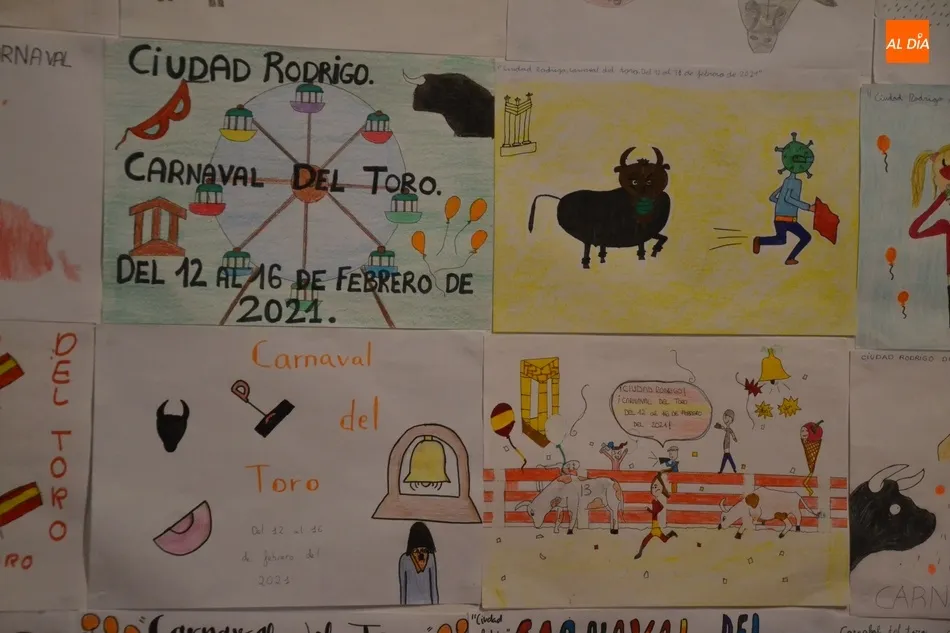 AL DÍA
RNAVAL
CIUDAD RODRIGO.
CARNAVAL DEL TORO.
DEL 12 AL 16 DE FEBRERO DE
2021.
"Ciudad Rodrigo, carnaval del toro. Del 12 al 16 de febrero de 2021"
"Ciudad Rodrigo
DEL TORO
RO
Carnaval
del
Toro
Del 12 al 16
de febrero del
2021
¡CIUDAD RODRIGO!
¡CARNAVAL DEL TORO
DEL 12 AL 16 DE FEBRERO
DEL 2021!
13
CIUDAD RODRIGO D
CARN
"Carnaval del To
"Ciudad
CARNAVAL DEL
Carnaval del toro